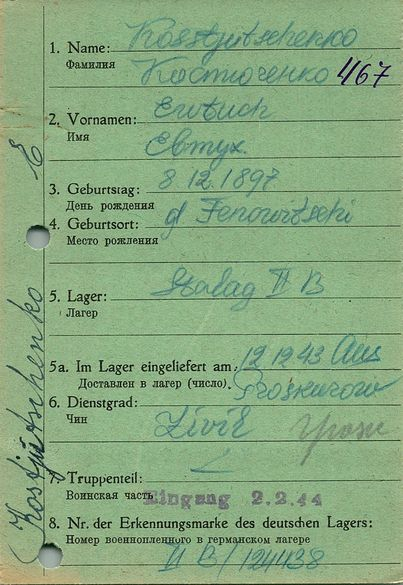 1. Name: Kosstjutschenko
Фамилия Костюченко 467
2. Vornamen: Ewtuch
Имя Евтух.
3. Geburtstag: 8 12. 1897
День рождения
4. Geburtsort: d Fenowitschi
Место рожления
5. Lager: Stalag II B
Лагер
5a. Im Lager eingeliefert am: 12 12 43 Aus
Доставлен в лагер (число). Proskurow
6. Dienstgrad: Zivil
Чин
7. Truppenteil:
Воинская часть Eingang 2.2.44
8. Nr. der Erkennungsmarke des deutschen Lagers:
Номер военнопленного в германском лагере
II B / 124438
Kostjutschenko E